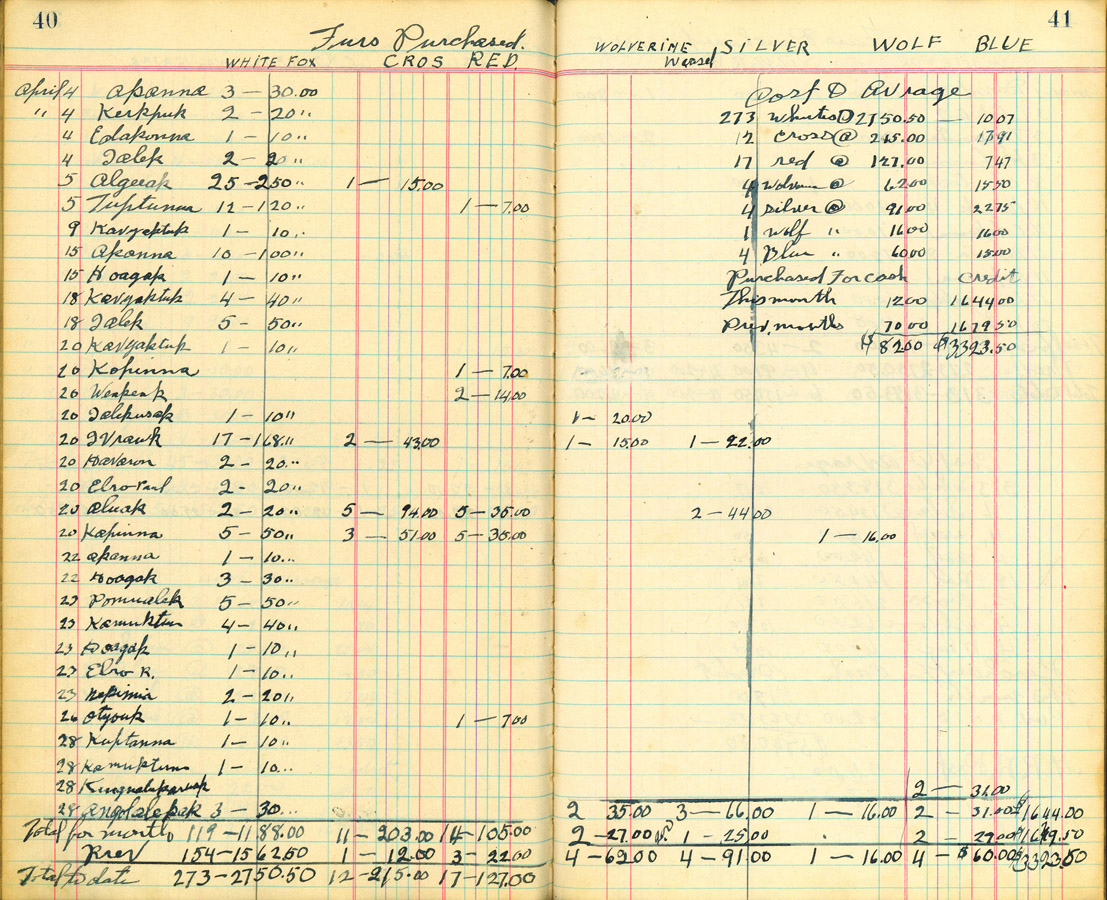 40
Furs Purchased.
WHITE FOX CROS RED
April 4 Apanna 3 — 30.00
" 4 Kerkpuk 2 — 20"
4 Edakonna 1 — 10"
4 Jalek 2 — 20"
5 Algeeak 25 — 250" 1 — 15.00
5 Tuptunna 12 — 120" 1 — 7.00
9 Kavyaktuk 1 — 10"
15 Apanna 10 — 100"
15 Hoagak 1 — 10"
18 Kavyaktuk 4 — 40"
18 Jalek 5 — 50"
20 Kavyaktuk 1 — 10"
20 Kopinna 1 — 7.00
20 2 — 14.00
20 1 — 10"
20 17 — 168" 2 — 43.00
20 2 — 20"
20 2 — 20"
20 Aluak 2 — 20" 5 — 94.00 5 — 35.00
20 Kopinna 5 — 50" 3 — 51.00 5 — 35.00
22 Apanna 1 — 10"
22 Hoagak 3 — 30"
23 5 — 50"
23 4 — 40"
23 Hoagak 1 — 10"
23 Elro R. 1 — 10"
23 2 — 20"
26 Otyouk 1 — 10" 1 — 7.00
28 Kuptanna 1 — 10"
28 1 — 10"
28
28 Angolalepak 3 — 30"
Total for month 119 — 1188.00 11 — 203.00 14 — 105.00
Prev 154 — 1562.50 1 — 12.00 3 — 22.00
Total to date 273 — 2750.50 12 — 215.00 17 — 127.00
41
WOLVERINE SILVER WOLF BLUE
Cost & Avrage
273 Whites @ 2750.50 — 1007
12 Cross @ 215.00 1791
17 red @ 127.00 747
4 @ 6200 1550
4 Silver @ 9100 2275
1 Wolf " 1600 1600
4 Blue " 6000 1500
Purchased For cash credit
This month 1200 1644.00
Prev. months 7000 1679.50
$8200 $3323.50
1 — 20.00
1 — 15.00 1 — 22.00
2 — 44.00
1 — 16.00
2 — 31.00
2 35.00 3 — 66.00 1 — 16.00 2 — 31.00 $1644.00
2 — 27.00 1 — 25.00 2 — 29.00
4 — 62.00 4 — 91.00 1 — 16.00 4 — $60.00 $3323.50